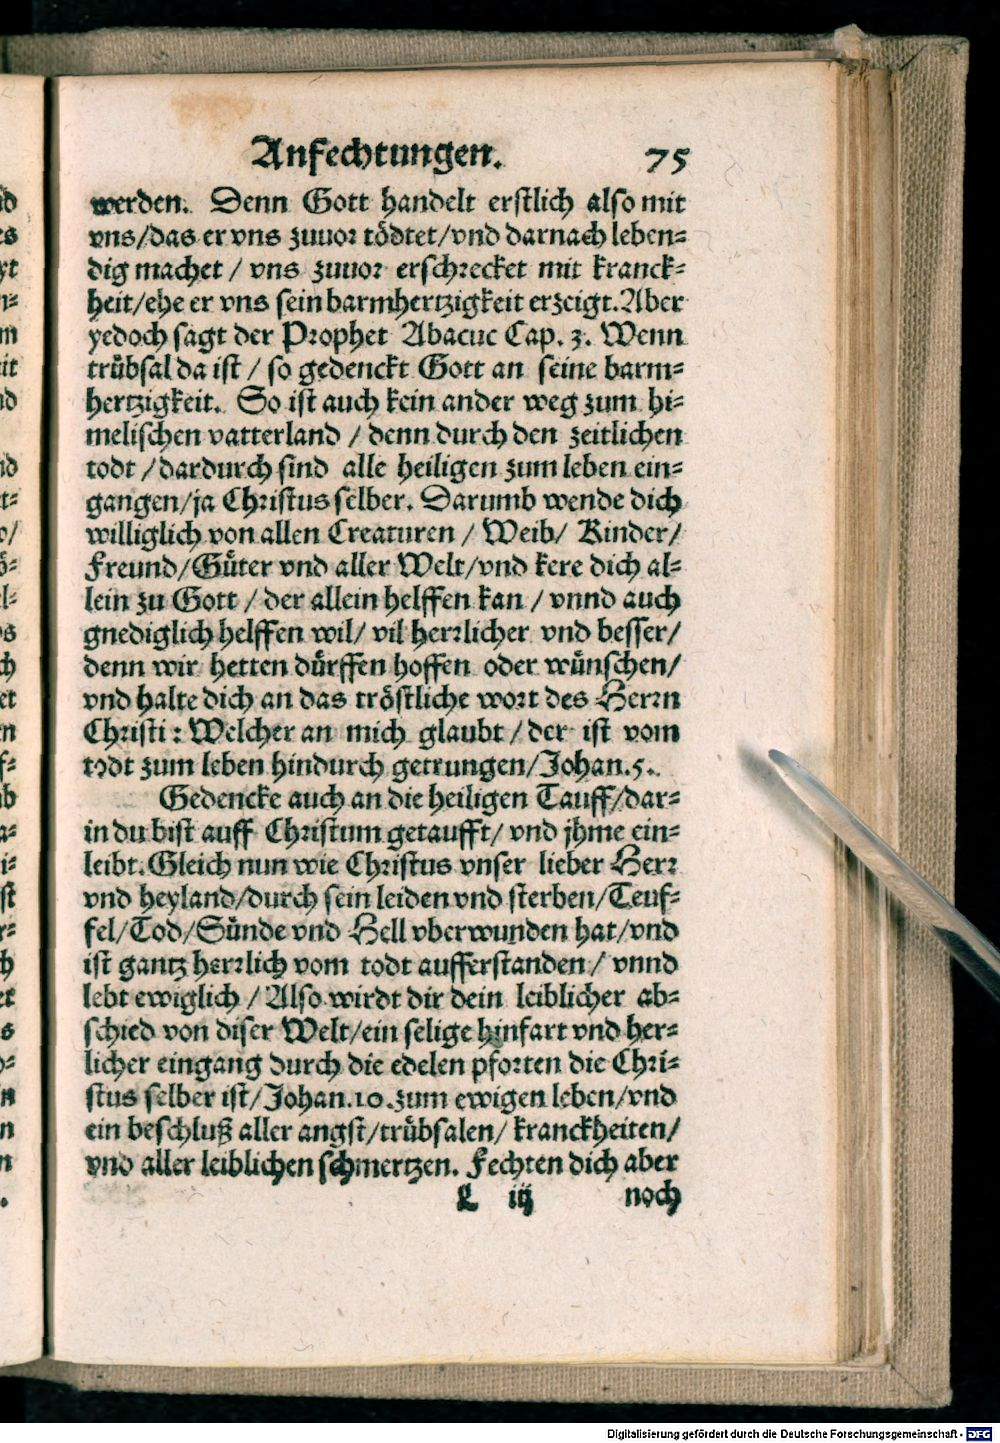 Anfechtungen. 75
werden. Denn Gott handelt erstlich also mit
vns/das er vns zuuor tödtet/vnd darnach leben=
dig machet / vns zuuor erschrecket mit kranck=
heit/ehe er vns sein barmhertzigkeit erzeigt. Aber
yedoch sagt der Prophet Abacuc Cap. 3. Wenn
trübsal da ist / so gedenckt Gott an seine barm=
hertzigkeit. So ist auch kein ander weg zum hi=
melischen vatterland / denn durch den zeitlichen
todt / dardurch sind alle heiligen zum leben ein=
gangen/ja Christus selber. Darumb wende dich
williglich von allen Creaturen / Weib/ Kinder/
Freund/Güter vnd aller Welt/vnd kere dich al=
lein zu Gott / der allein helffen kan / vnnd auch
gnediglich helffen wil/ vil herrlicher vnd besser/
denn wir hetten dürffen hoffen oder wünschen/
vnd halte dich an das tröstliche wort des Herrn
Christi : Welcher an mich glaubt / der ist vom
todt zum leben hindurch getrungen/Johan.5.
Gedencke auch an die heiligen Tauff/dar=
in du bist auff Christum getaufft/ vnd jhme ein=
leibt. Gleich nun wie Christus vnser lieber Herr
vnd heyland/durch sein leiden vnd sterben/Teuf=
fel/Tod/Sünde vnd Hell vberwunden hat/vnd
ist gantz herrlich vom todt aufferstanden / vnnd
lebt ewiglich / Also wirdt dir dein leiblicher ab=
schied von diser Welt/ein selige hinfart vnd her=
licher eingang durch die edelen pforten die Chri=
stus selber ist/Johan.10.zum ewigen leben/vnd
ein beschluß aller angst/trübsalen/ kranckheiten/
vnd aller leiblichen schmertzen. Fechten dich aber
iij noch
Digitalisierung gefördert durch die Deutsche Forschungsgemeinschaft - DFG